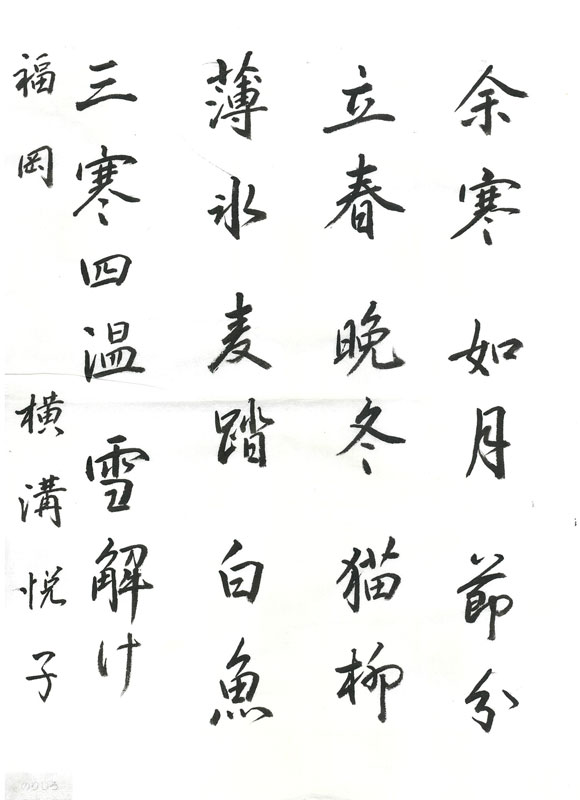 余寒 如月 節分
立春 晩冬 猫柳
薄氷 麦踏 白魚
三寒四温 雪解け
福岡 横溝悦子
のりしろ